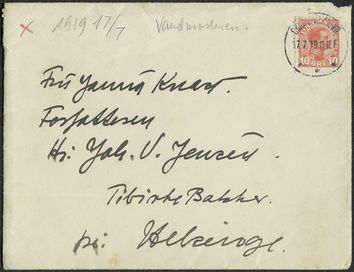 x 1919 17/7 Vandmoderen.
17.7.19.11-12F.
10 ØRE 10
Fru Jenny Knarr.
Forfatteren
Hr. Joh. V. Jensen.
Tibirke Bakker.
pr. Helsinge.